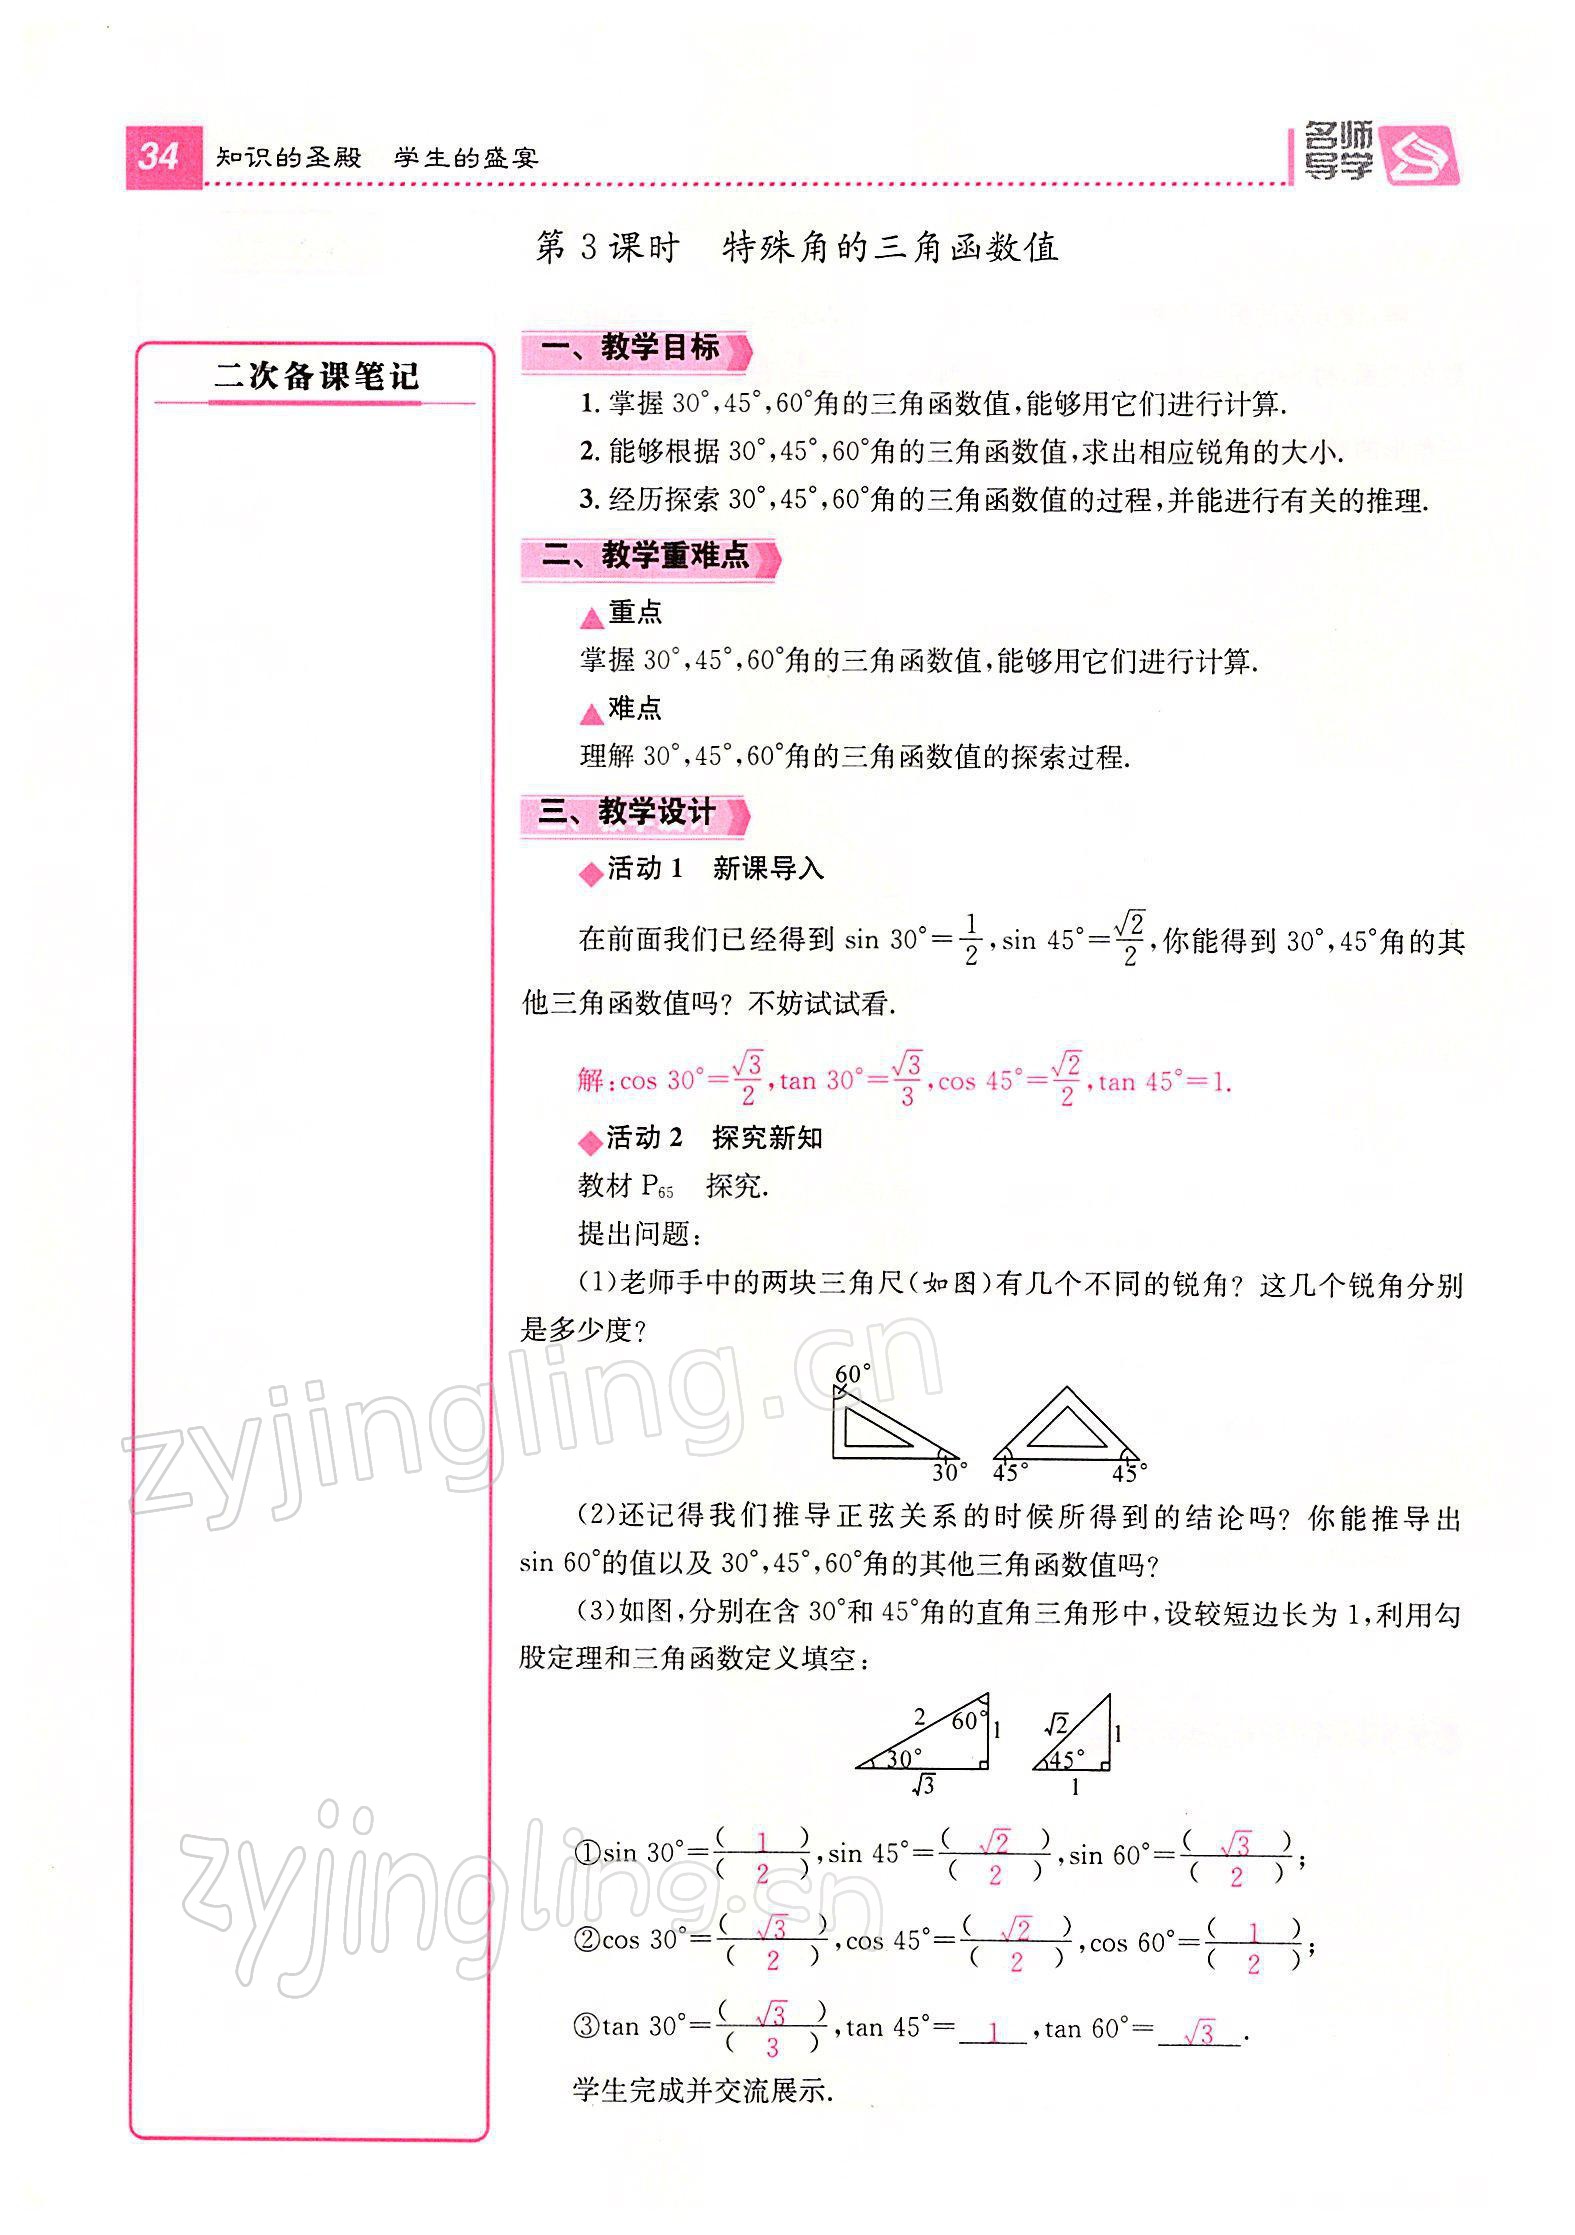 34 知识的圣殿 学生的盛宴
名师
导学
第3课时 特殊角的三角函数值
二次备课笔记
一、教学目标
1. 掌握 30°,45°,60°角的三角函数值,能够用它们进行计算.
2. 能够根据 30°,45°,60°角的三角函数值,求出相应锐角的大小.
3. 经历探索 30°,45°,60°角的三角函数值的过程,并能进行有关的推理.
二、教学重难点
▲重点
掌握 30°,45°,60°角的三角函数值,能够用它们进行计算.
▲难点
理解 30°,45°,60°角的三角函数值的探索过程.
三、教学设计
◆活动1 新课导入
在前面我们已经得到 sin 30°=1/2,sin 45°=√2/2,你能得到 30°,45°角的其
他三角函数值吗? 不妨试试看.
解:cos 30°=√3/2,tan 30°=√3/3,cos 45°=√2/2,tan 45°=1.
◆活动2 探究新知
教材 P65 探究.
提出问题:
(1)老师手中的两块三角尺(如图)有几个不同的锐角? 这几个锐角分别
是多少度?
60°
30° 45° 45°
(2)还记得我们推导正弦关系的时候所得到的结论吗? 你能推导出
sin 60°的值以及 30°,45°,60°角的其他三角函数值吗?
(3)如图,分别在含 30°和 45°角的直角三角形中,设较短边长为 1,利用勾
股定理和三角函数定义填空:
2 60° 1 √2 1
30° 45°
√3 1
①sin 30°=( 1 )/( 2 ),sin 45°=( √2 )/( 2 ),sin 60°=( √3 )/( 2 );
②cos 30°=( √3 )/( 2 ),cos 45°=( √2 )/( 2 ),cos 60°=( 1 )/( 2 );
③tan 30°=( √3 )/( 3 ),tan 45°= 1 ,tan 60°= √3 .
学生完成并交流展示.
zyjingling.cn
zyjingling.cn